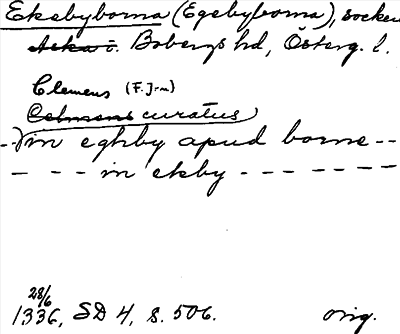 Ekebyborna (Egebyborna), socken
Aska i. Bobergs hd, Österg. l.
Clemens (F. J-m)
Celmens curatus
--) in eghby apud borne --
- - - in ekby - - - - - -
28/6
1336, SD 4, s. 506. orig.